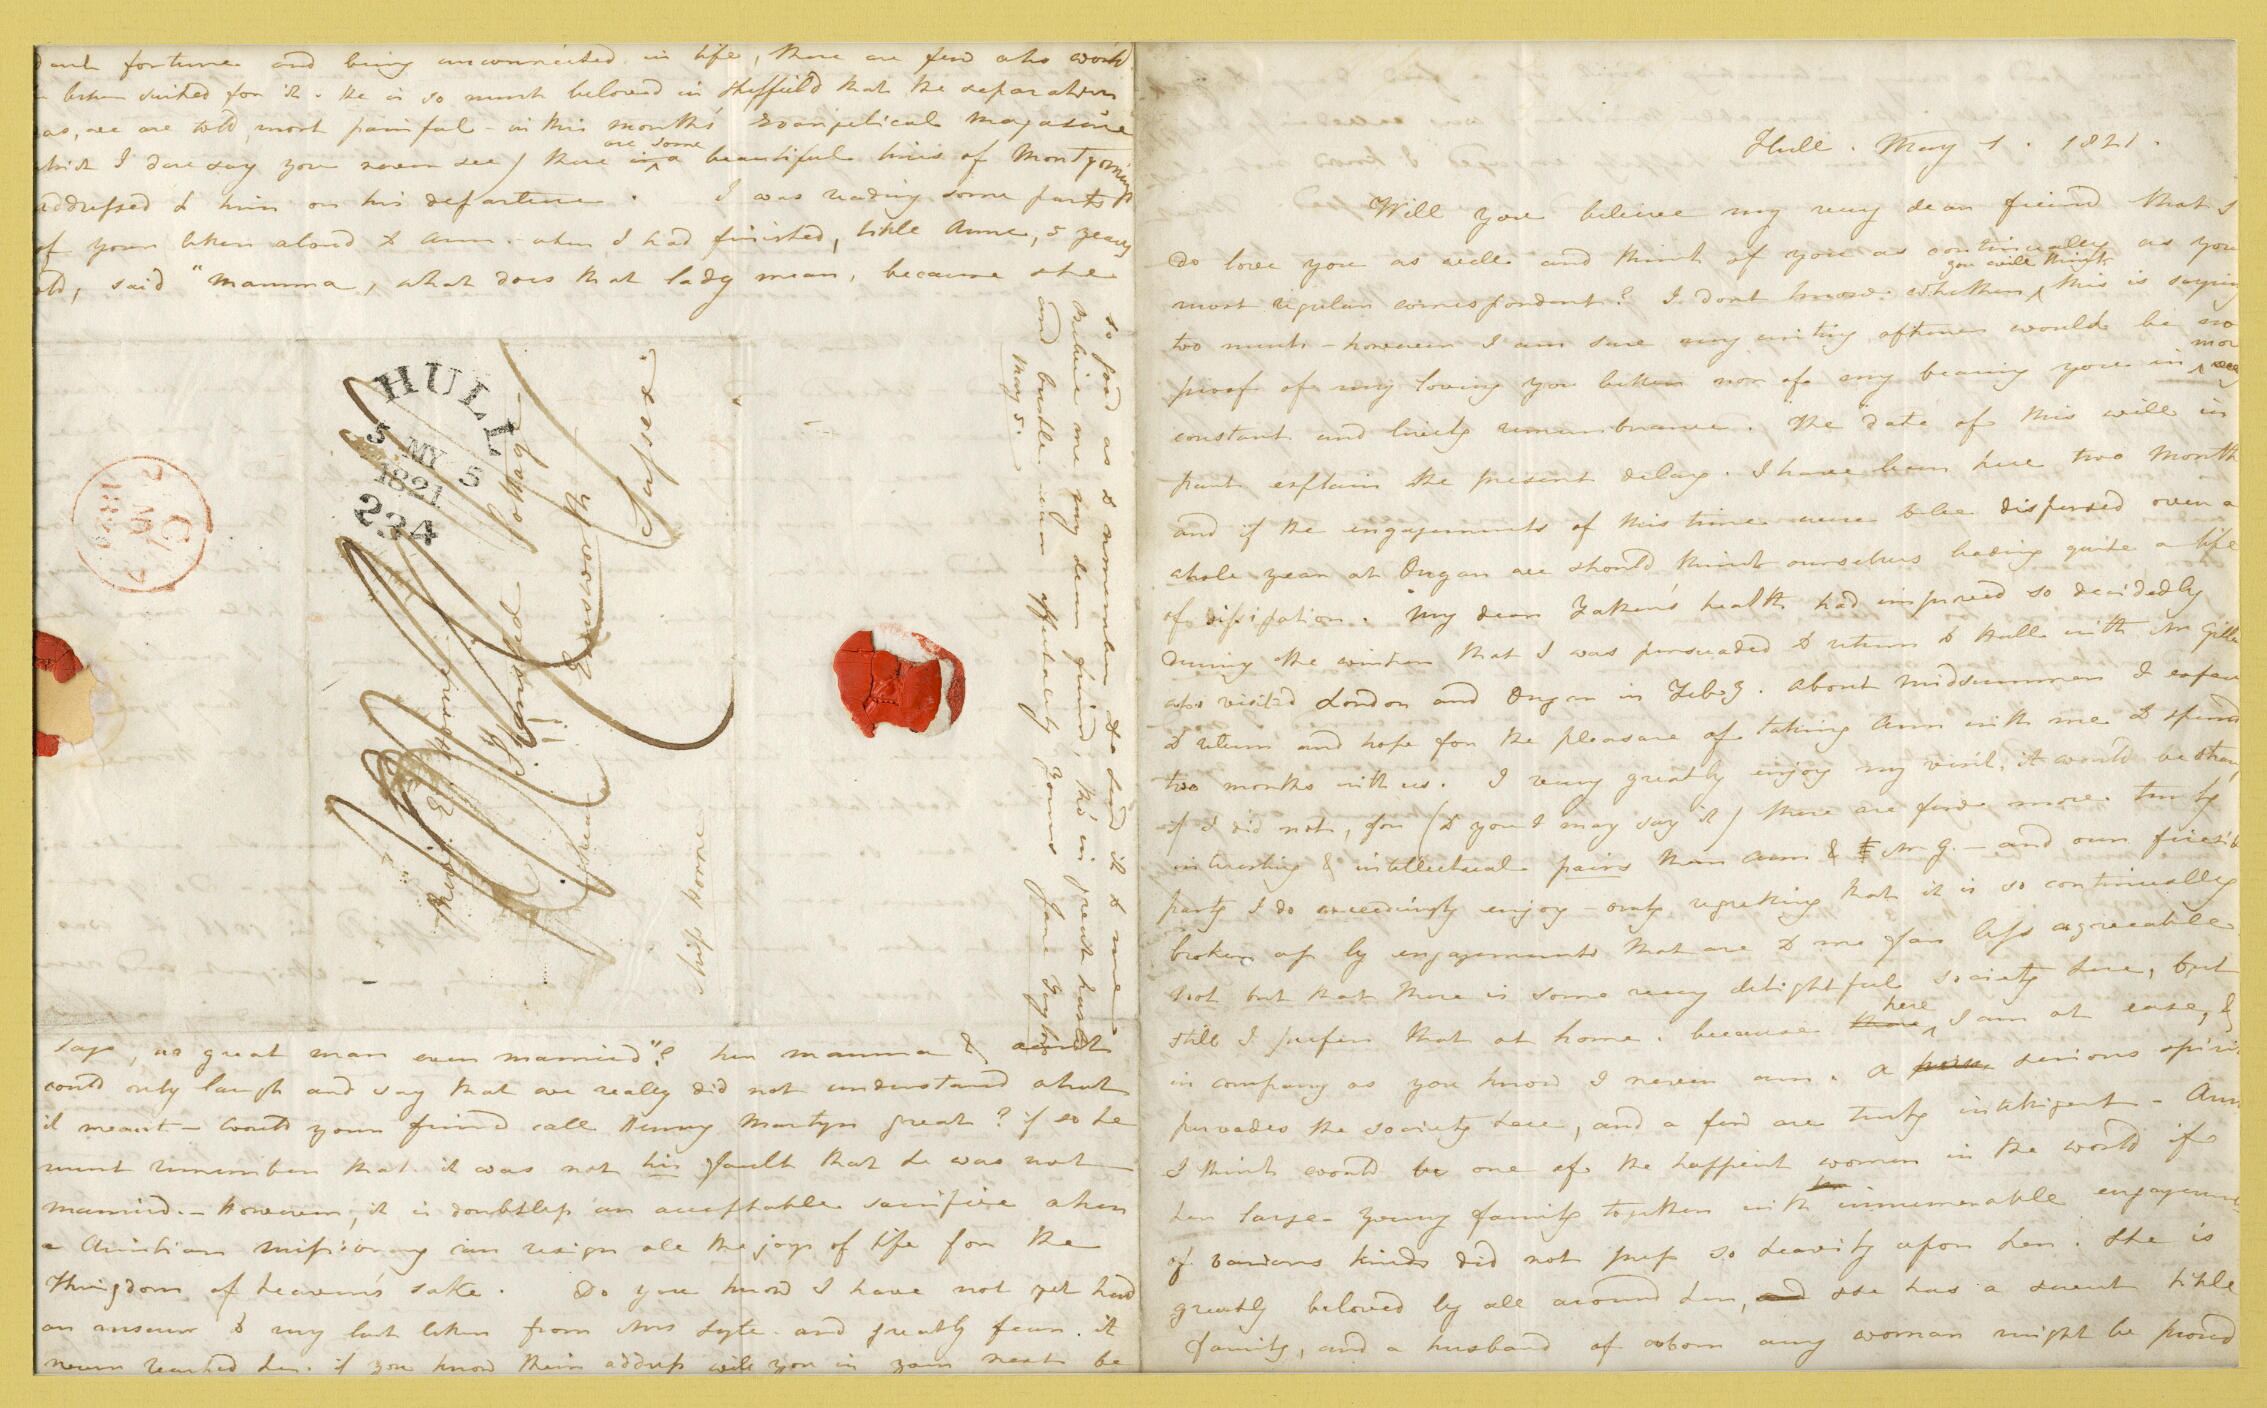 Hull. May 1. 1821.
Will you believe my very dear friend that I
do love you as well and think of you as continually as your
most regular correspondent? I dont know whether you will think this is saying
too much - however I am sure my writing oftener would be no
proof of my loving you better nor of my bearing you in more
constant and lively remembrance. The date of this will in
part explain the present delay. I have been here two months
and if the engagements of this time were to be dispersed over a
whole year at Ongar we should think ourselves leading quite a life
of dissipation. My dear Father's health had improved so decidedly
during the winter that I was persuaded to return to Hull with Mr Gilbert
who visited London and Ongar in Feb.y. About midsummer I expect
to return and hope for the pleasure of taking Ann with me to spend
two months with us. I very greatly enjoy my visit. it would be strange
if I did not, for (to you I may say it) there are few more truly
interesting & intellectual pairs than Ann & Mr G. - and our fireside
party I do exceedingly enjoy - only regretting that it is so continually
broken up by engagements that are to me far less agreeable
Not but that there is some very delightful society here, but
still I prefer that at home. because there here I am at ease, &
in company as you know I never am. A serious spirit
pervades the society here, and a few are truly intelligent - Ann
I think would be one of the happiest women in the world if
her large young family together with her innumerable engagements
of various kinds did not press so heavily upon her. She is
greatly beloved by all around her, and she has a sweet little
family, and a husband of whom any woman might be proud
fortune and being unconnected in life, there are few who would
better suited for it. He is so much beloved in Sheffield that the separation
was, we are told, most painful - in this month's Evangelical Magazine
which I dare say you never see) there is a are some beautiful lines of Montgomery's
addressed to him on his departure. I was reading some parts
of your letter aloud to Ann. when I had finished, little Anne, 5 years
old, said "Mamma, what does that lady mean, because she
says, no great man ever married"? her mamma & aunt
could only laugh and say that we really did not understand what
it meant - Would your friend call Henry Martyn great? if so he
must remember that it was not his fault that he was not
married. - However, it is doubtless an acceptable sacrifice when
a Christian Missionary can resign all the joys of life for the
Kingdom of heaven's sake. Do you know I have not yet had
an answer to my last letter from Mrs Lyte and greatly fear it
never reached her. if you know their address will you in your next be
so good as to remember to send it to me
Believe me my dear friend, tho' in great haste
and bustle ever affectionately yours Jane Taylor
May 5.
HULL
5 MY 5
1821
234
C
7 MY 7
1821
Miss Horne